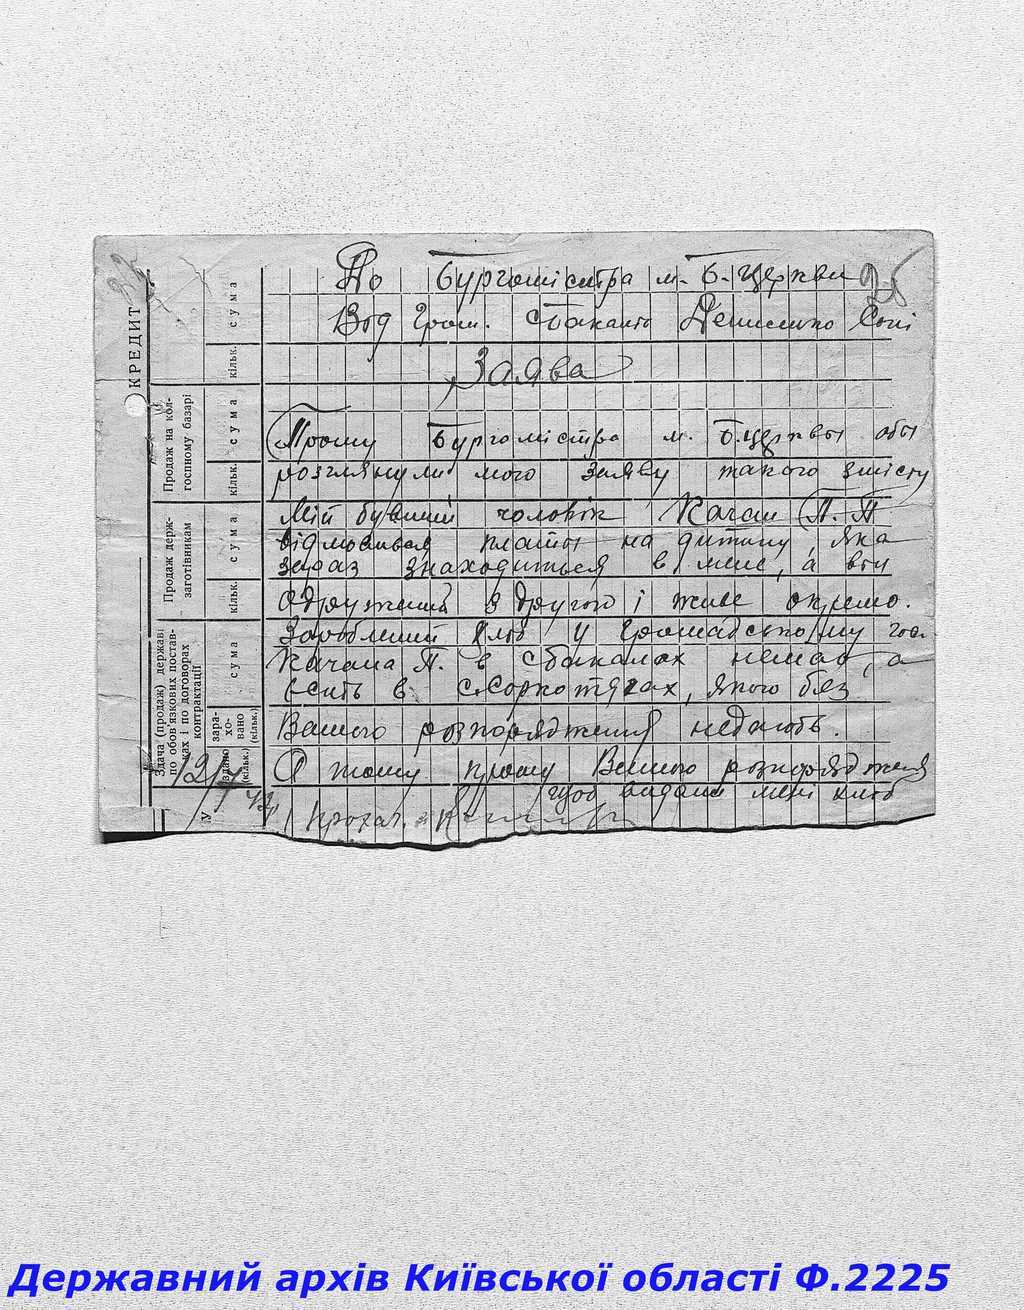 До Бургомістра м. Б. Церкви
26
Від Гром. Денисенко Соні
Заява
Прошу Бургомістра м. Б. Церкви обы
розглянули мого заяву такого змісту
Мій бувший чоловік Качан П. П
відмовивься платы на дитину, яка
зараз знаходиться в мене, а він
одружений з другою і живе окремо.
Зароблений хліб у громадському гос.
Качана П. в немає, а
есть в якого без
Вашого розпорядження недають.
О тому прошу Вашого розпорядженя
щоб видали мені хліб
12/I 43
Прохач.
КРЕДИТ
Продаж на кол-
госпному базарі
сума
кільк.
Продаж держ-
заготівникам
сума
кільк.
Здача (продаж) державі
по обов'язкових постав-
ках і по договорах
контрактації
сума
зара-
хо-
вано
(кільк.)
здано
(кільк.)
сума
кільк.
Державний архів Київської області Ф.2225